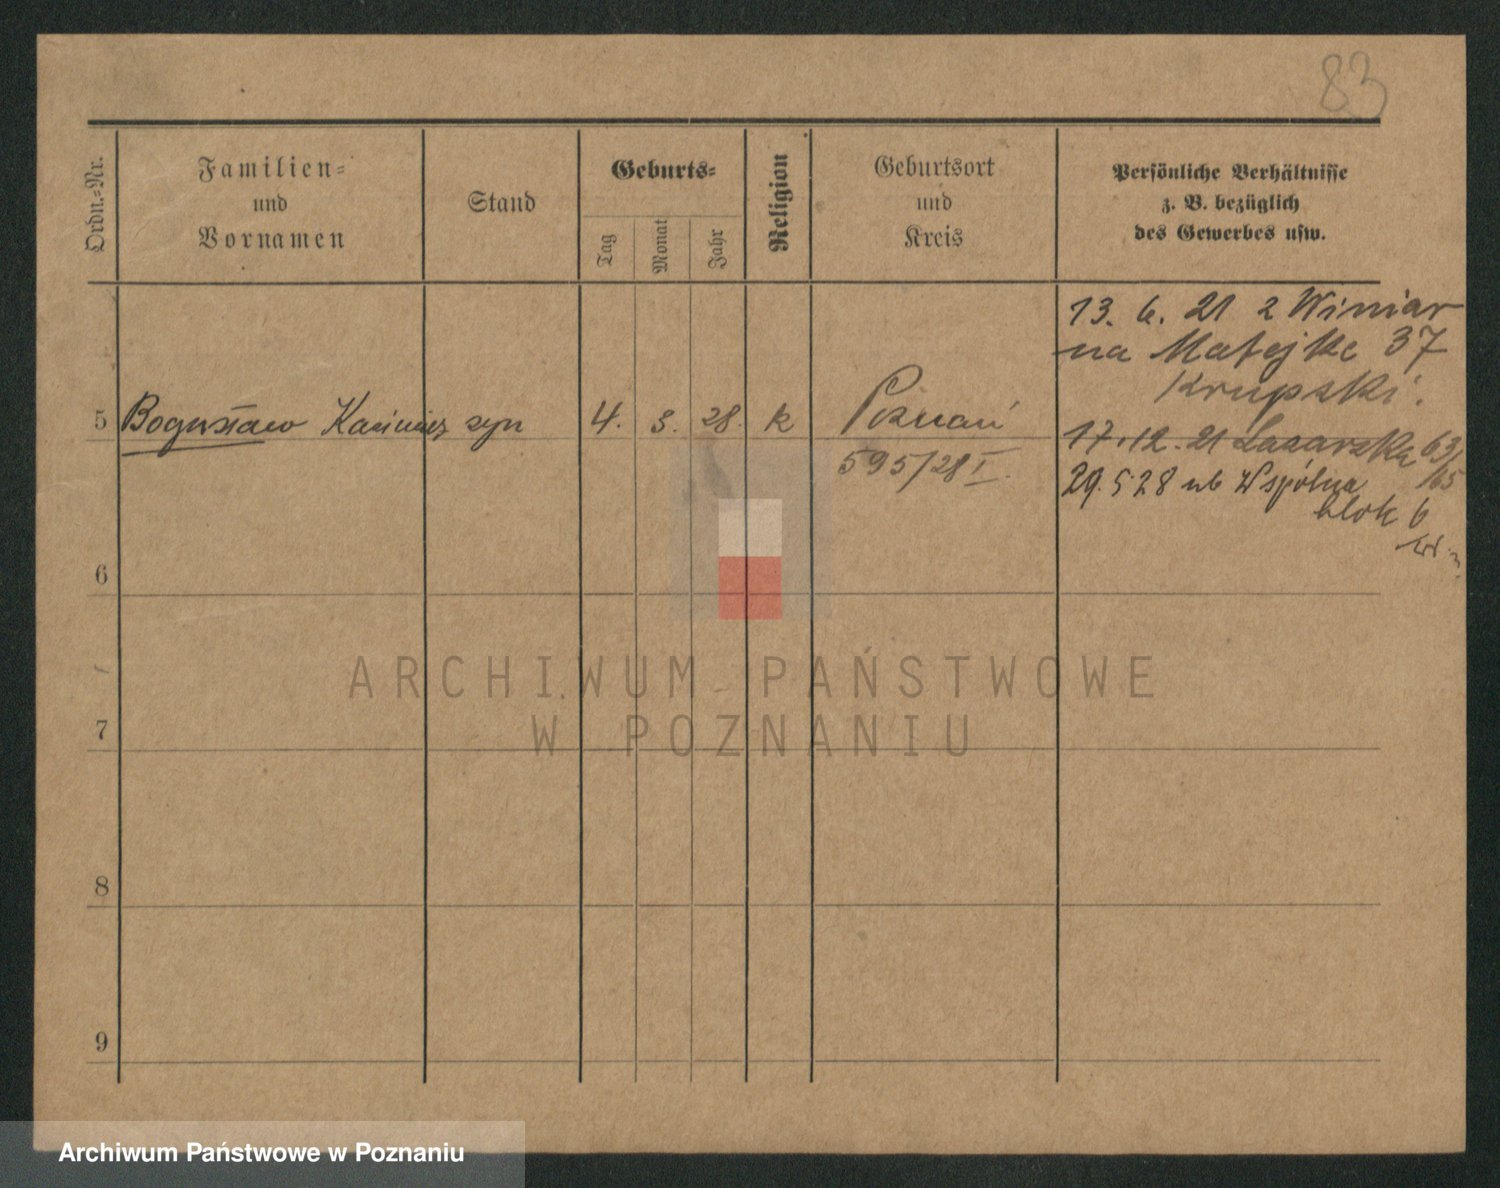 83
Ordn.=Nr.
Familien=
und
Vornamen
Stand
Geburts=
Tag
Monat
Jahr
Religion
Geburtsort
und
Kreis
Persönliche Verhältnisse
z. B. bezüglich
des Gewerbes usw.
13. 6. 21 z Winiar
na Matejki 37
Krupski.
5 Bogusław Kazimierz syn 4. 3. 28. k Poznań
595/28 I.
17.12.21 Łazarska 63/65
29.5.28 ub Wspólna
blok 6
6
7
8
9
ARCHIWUM PAŃSTWOWE
W POZNANIU
Archiwum Państwowe w Poznaniu